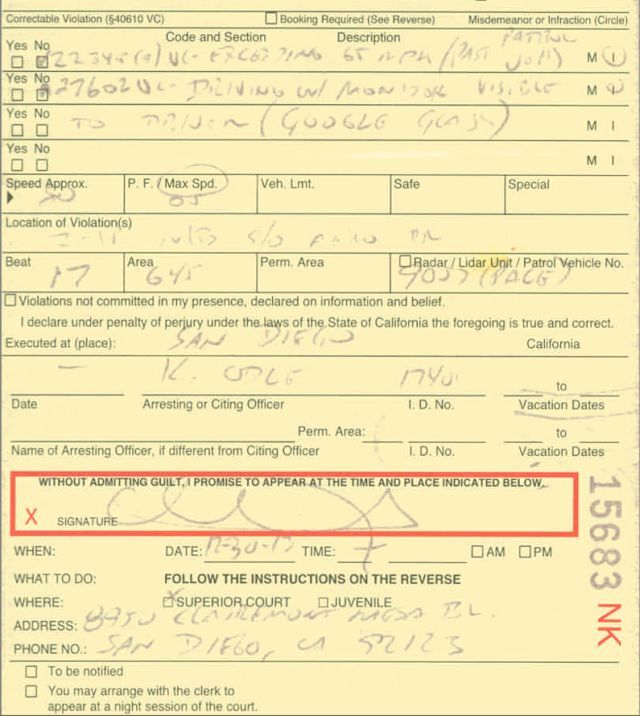 Correctable Violation (§40610 VC) Booking Required (See Reverse) Misdemeanor or Infraction (Circle)
Yes No Code and Section Description PATROL
22349(a) VC- EXCEEDING 65 MPH (PAST M I
Yes No 27602 VC- DRIVING W/ MONITOR VISIBLE M I
Yes No TO DRIVER (GOOGLE GLASS) M I
Yes No M I
Speed Approx. P. F./Max Spd. Veh. Lmt. Safe Special
65
Location of Violation(s)
S/O
Beat Area Perm. Area Radar / Lidar Unit / Patrol Vehicle No.
17 645 (PACE)
Violations not committed in my presence, declared on information and belief.
I declare under penalty of perjury under the laws of the State of California the foregoing is true and correct.
Executed at (place): SAN DIEGO California
K. ODLE to
Date Arresting or Citing Officer I. D. No. Vacation Dates
Perm. Area: to
Name of Arresting Officer, if different from Citing Officer I. D. No. Vacation Dates
WITHOUT ADMITTING GUILT, I PROMISE TO APPEAR AT THE TIME AND PLACE INDICATED BELOW.
X SIGNATURE
WHEN: DATE: TIME: AM PM
WHAT TO DO: FOLLOW THE INSTRUCTIONS ON THE REVERSE
WHERE: X SUPERIOR COURT JUVENILE
ADDRESS: 8950 CLAIREMONT MESA BL.
PHONE NO.: SAN DIEGO, CA 92123
To be notified
You may arrange with the clerk to
appear at a night session of the court.
15683 NK